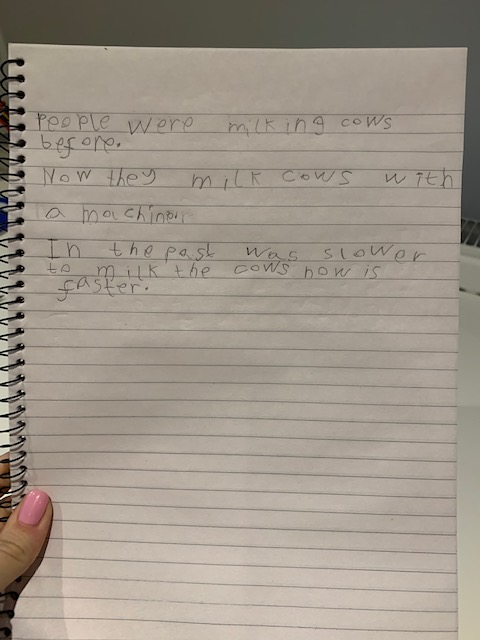 People were milking cows
before.
Now they milk cows with
a machine.
In the past was slower
to milk the cows now is
faster.